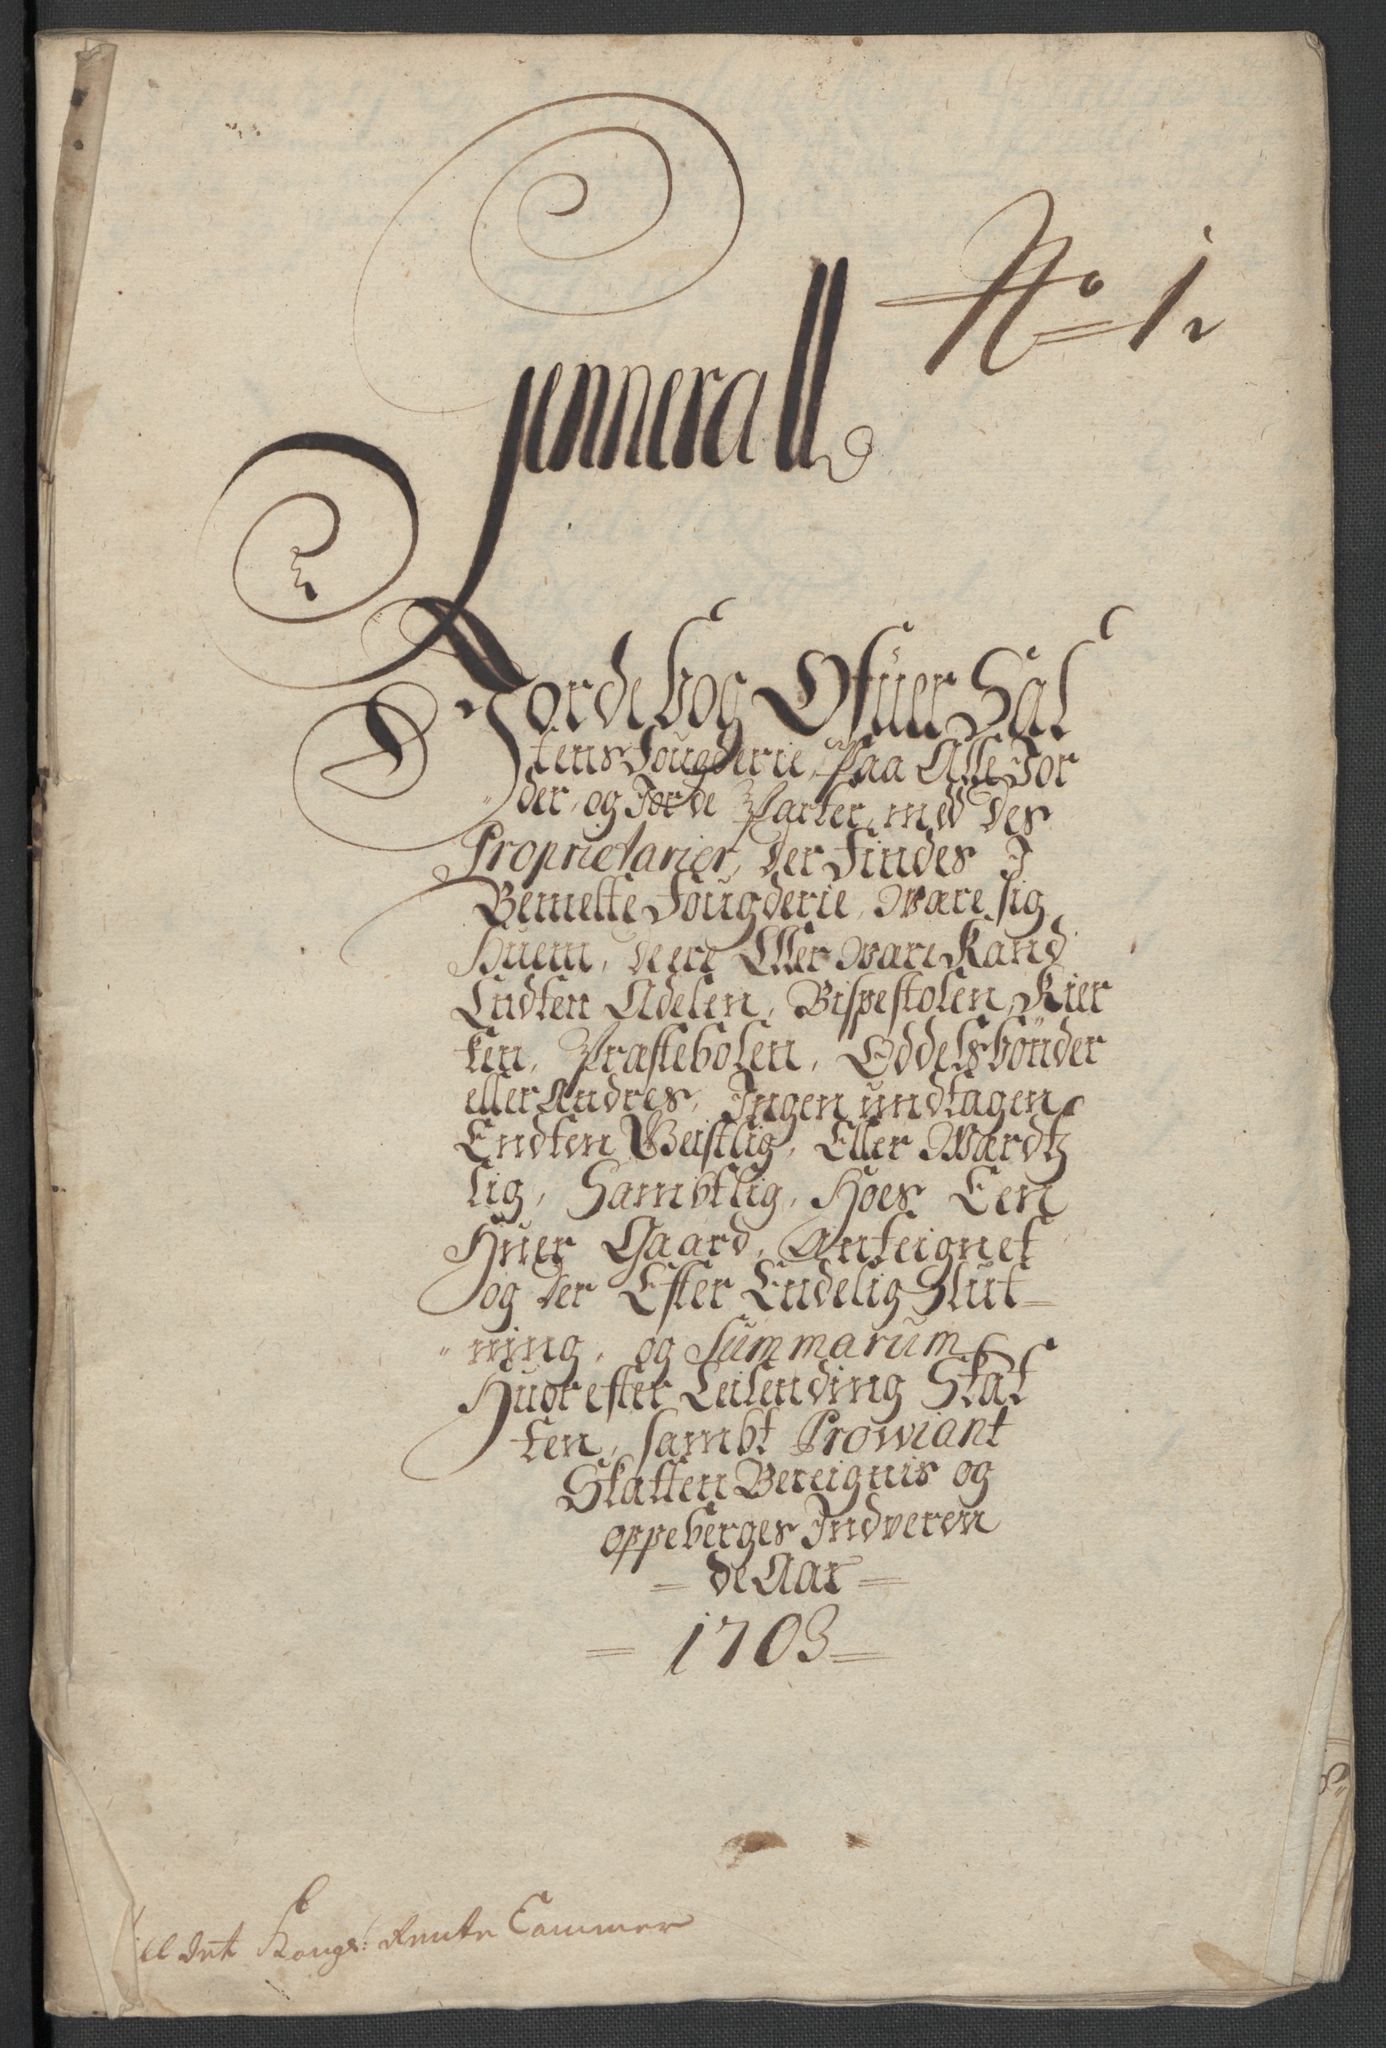 No 1,
Jennerall
Jordebog Ofuer Sal
tens Fougderie, Paa Alle Jor
der, og Jorde Parter, med des
Proprietarier, der Findes J
Bemelte Fougderie, være sig
Huem, de ere Eller være Kand
Endten Adelen, Bispestolen, Kier
ken, Præstebolen, Oddelsbönder
eller Andres, Jngen undtagen
Endten Geistlig, Eller Wærdtz
lig, Sambtlig, Hoes Een
Huer Gaard, Anteignet
og der Efter Endelig Slut
ning, og Summarum
Huorefter Leilending Skat
ten, sambt Prowiant
Skatten Bereignis og
oppeberges Jndveren
de Aar
1703
ill det Kongl: Rente Cammer